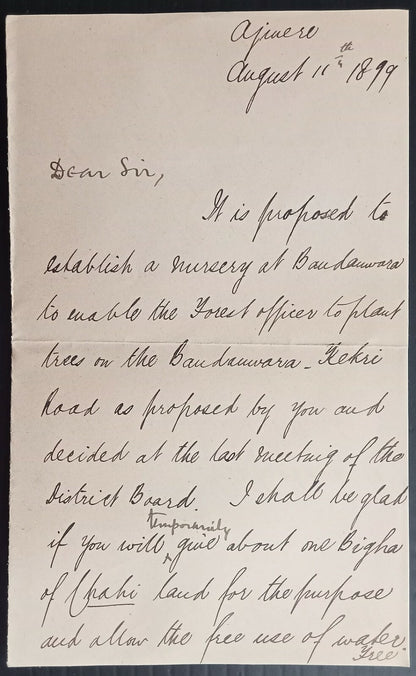 Ajmere
August 11th 1899
Dear Sir,
It is proposed to
establish a nursery at Bandanwara
to enable the Forest officer to plant
trees on the Bandanwara - Kekri
Road as proposed by you and
decided at the last meeting of the
District Board. I shall be glad
temporarily
if you will give about one Bigha
of Chahi land for the purpose
and allow the free use of water.
Free